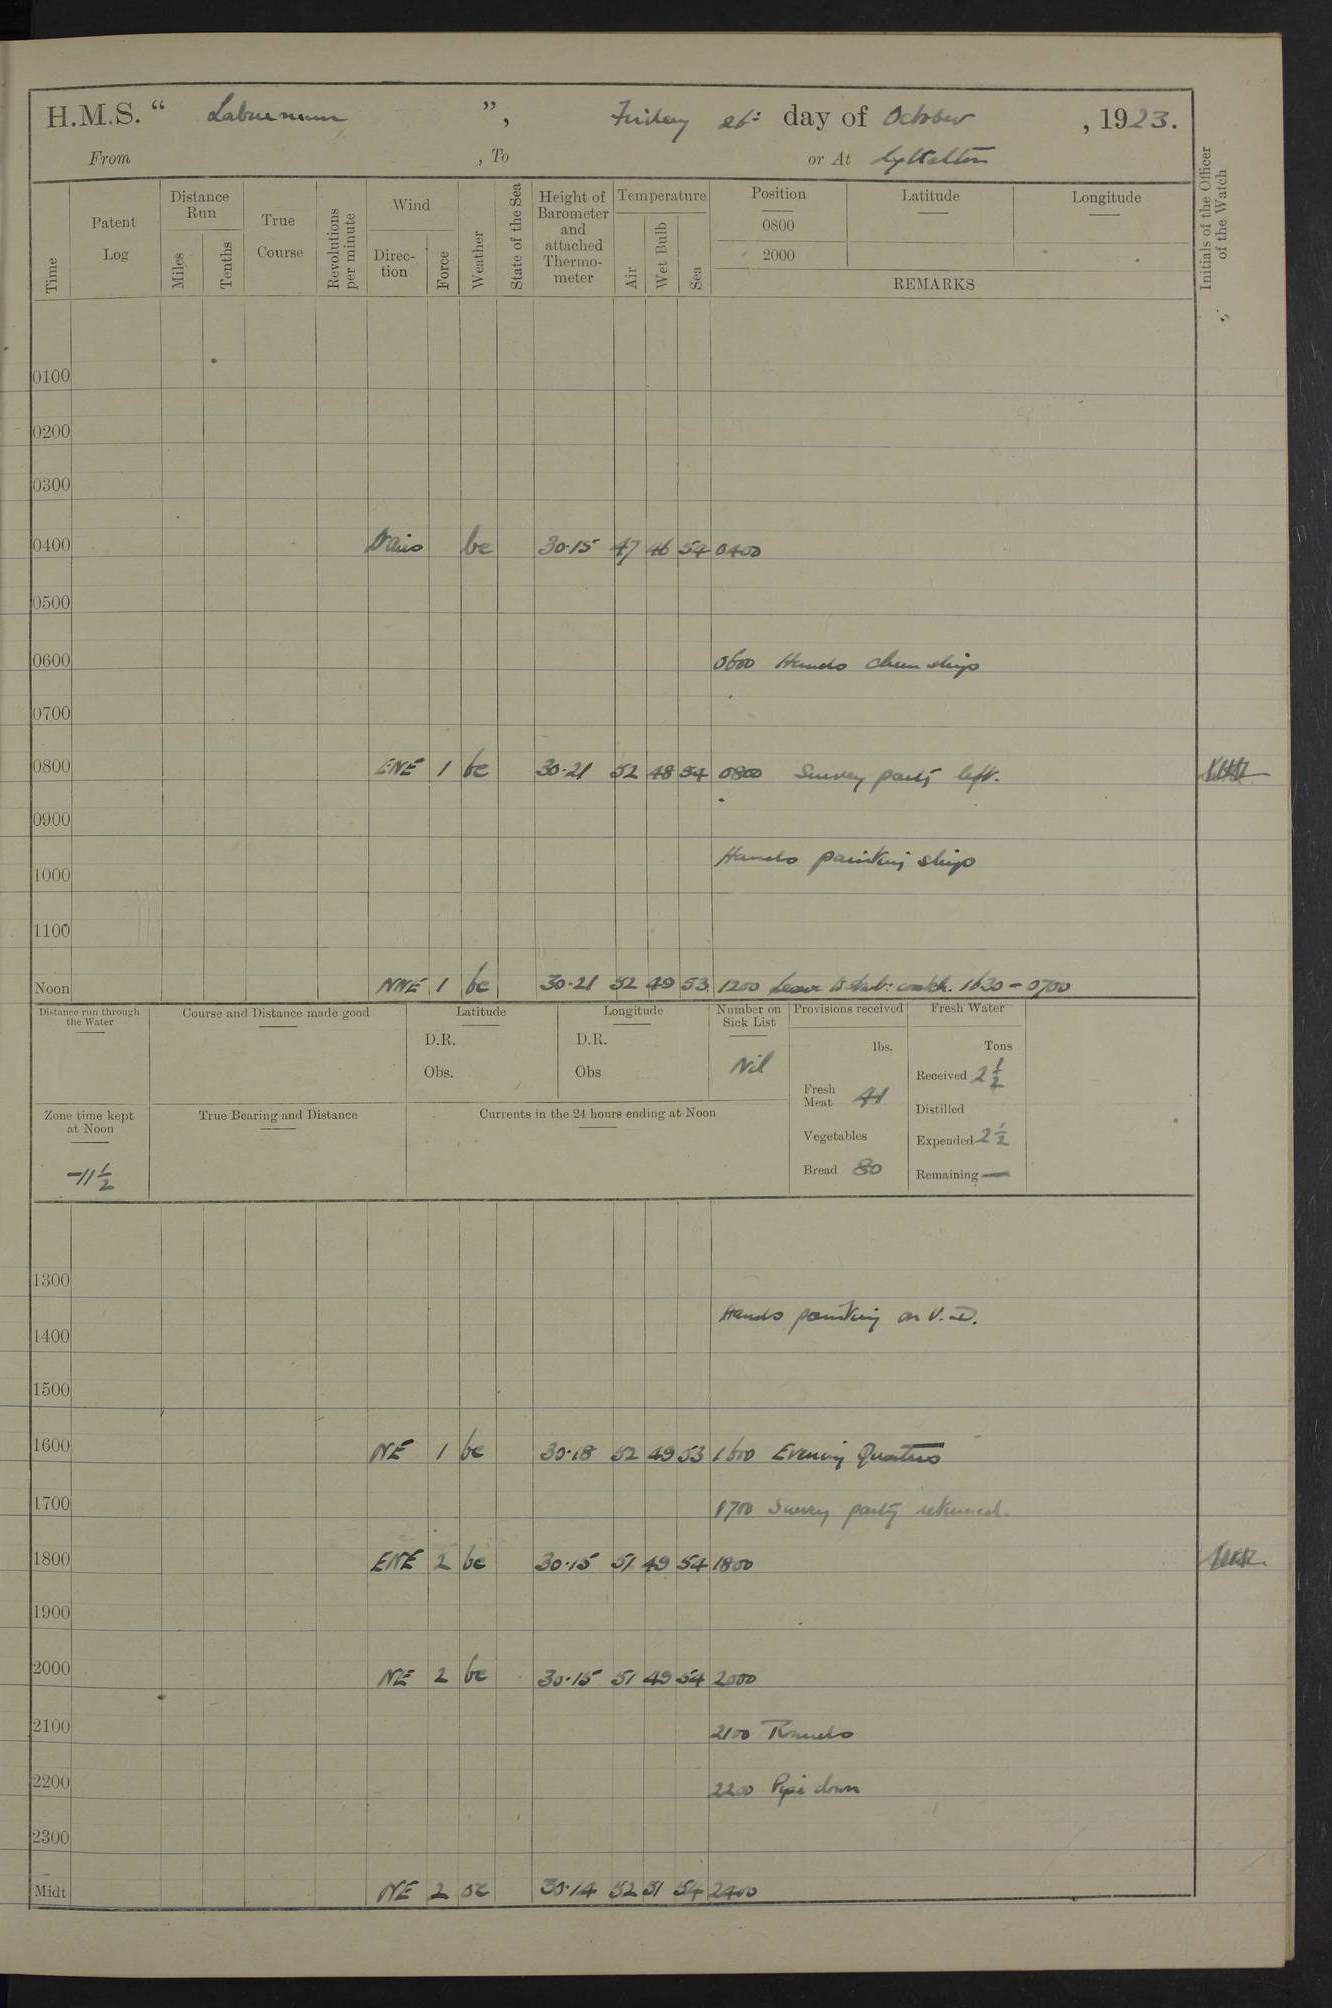 H.M.S. " Laburnum ", Friday 26th day of October, 1923.
From , To or At Lyttelton
Time
Patent Log
Distance Run
Miles
Tenths
True Course
Revolutions per minute
Wind
Direction
Force
Weather
State of the Sea
Height of Barometer and attached Thermometer
Temperature
Air
Wet Bulb
Sea
Position
0800
2000
Latitude
Longitude
REMARKS
Initials of the Officer of the Watch
0100
0200
0300
0400 bc 30.15 47 46 54 0400
0500
0600 0600 Hands clean ship
0700
0800 ENE 1 bc 30.21 52 48 54 0800 Survey party left.
0900
Hands painting ship
1000
1100
Noon NNE 1 bc 30.21 52 49 53 1200 Leave to Starb: watch. 1630 - 0700
Distance run through the Water
Course and Distance made good
Latitude
D.R.
Obs.
Longitude
D.R.
Obs
Number on Sick List
Nil
Provisions received
lbs.
Fresh Meat 41
Vegetables
Bread 80
Fresh Water
Tons
Received 2 1/2
Distilled
Expended 2 1/2
Remaining —
Zone time kept at Noon
-11 1/2
True Bearing and Distance
Currents in the 24 hours ending at Noon
1300
Hands painting
1400
1500
1600 NE 1 bc 30.18 52 49 53 1600 Evening Quarters
1700 1700 Survey party returned.
1800 ENE 2 bc 30.15 51 49 54 1800
1900
2000 NE 2 bc 30.15 51 49 54 2000
2100 2100 Rounds
2200 2200 Pipe down
2300
Midt NE 2 oc 30.14 52 51 54 2400